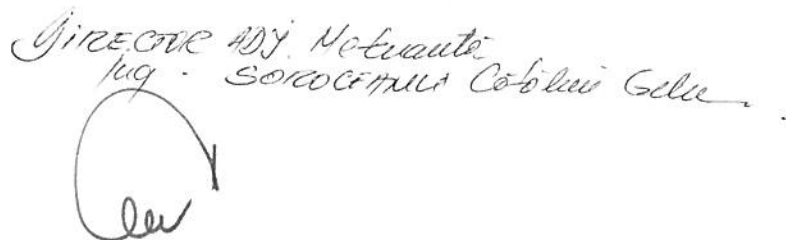 DIRECTOR ADJ. Metuantă
Ing. SOROCEANU Cătălin Gelu